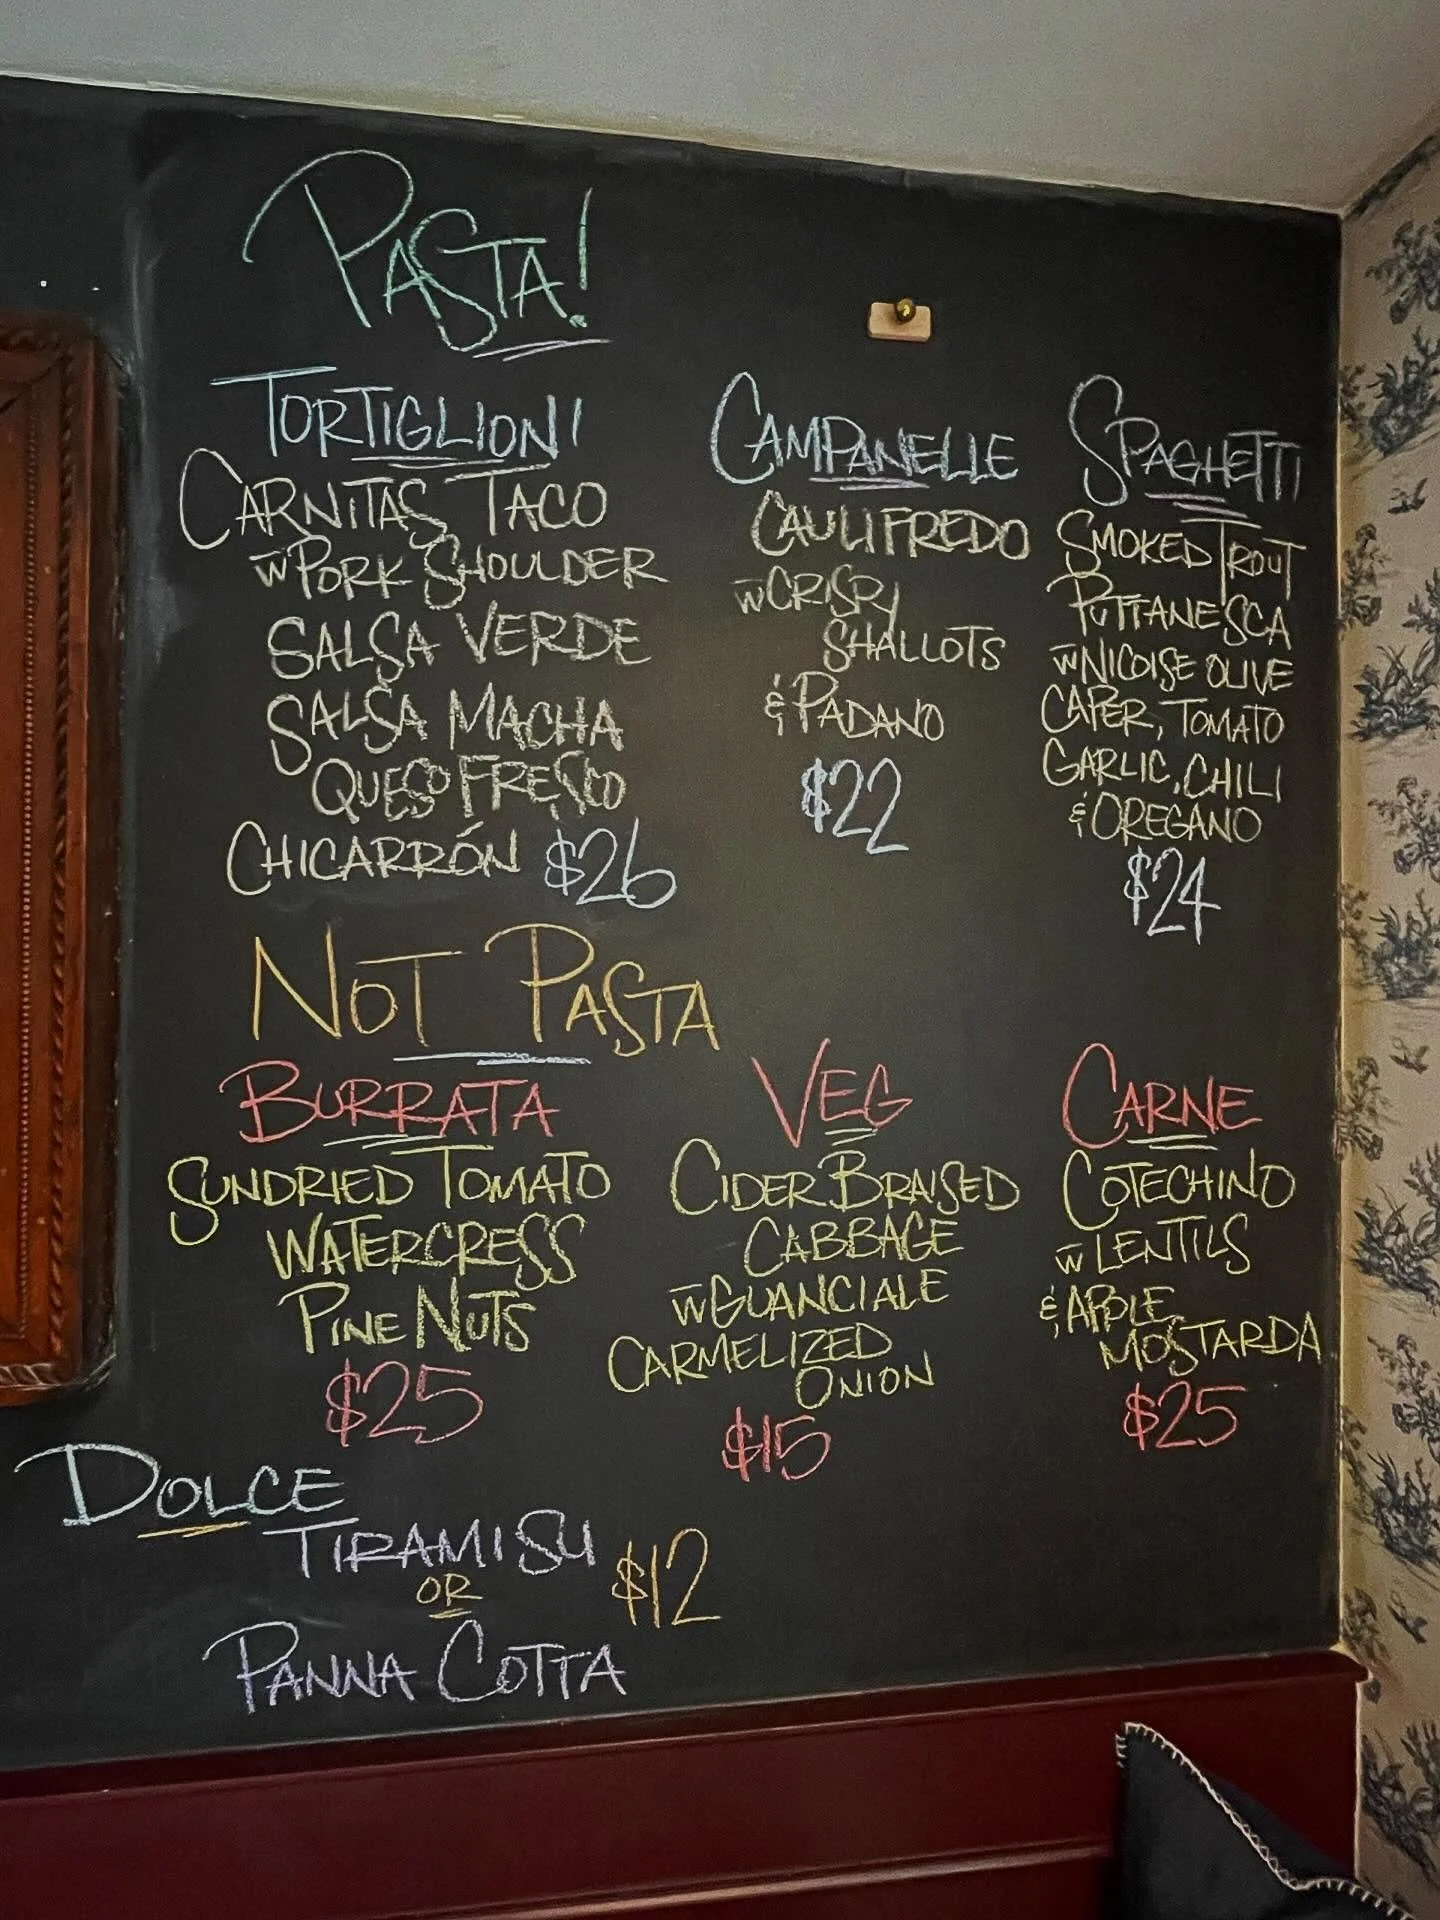 PASTA!
TORTIGLIONI
CARNITAS TACO
w PORK SHOULDER
SALSA VERDE
SALSA MACHA
QUESO FRESCO
CHICARRÓN $26
CAMPANELLE
CAULIFREDO
w CRISPY
SHALLOTS
& PADANO
$22
SPAGHETTI
SMOKED TROUT
PUTTANESCA
w NICOISE OLIVE
CAPER, TOMATO
GARLIC, CHILI
& OREGANO
$24
NOT PASTA
BURRATA
SUNDRIED TOMATO
WATERCRESS
PINE NUTS
$25
VEG
CIDER BRAISED
CABBAGE
w GUANCIALE
CARMELIZED
ONION
$15
CARNE
COTECHINO
w LENTILS
& APPLE
MOSTARDA
$25
DOLCE
TIRAMISU
OR
$12
PANNA COTTA